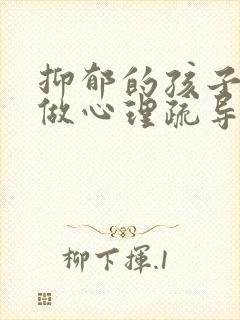 抑郁的孩子
做心理疏导
柳下揮.1